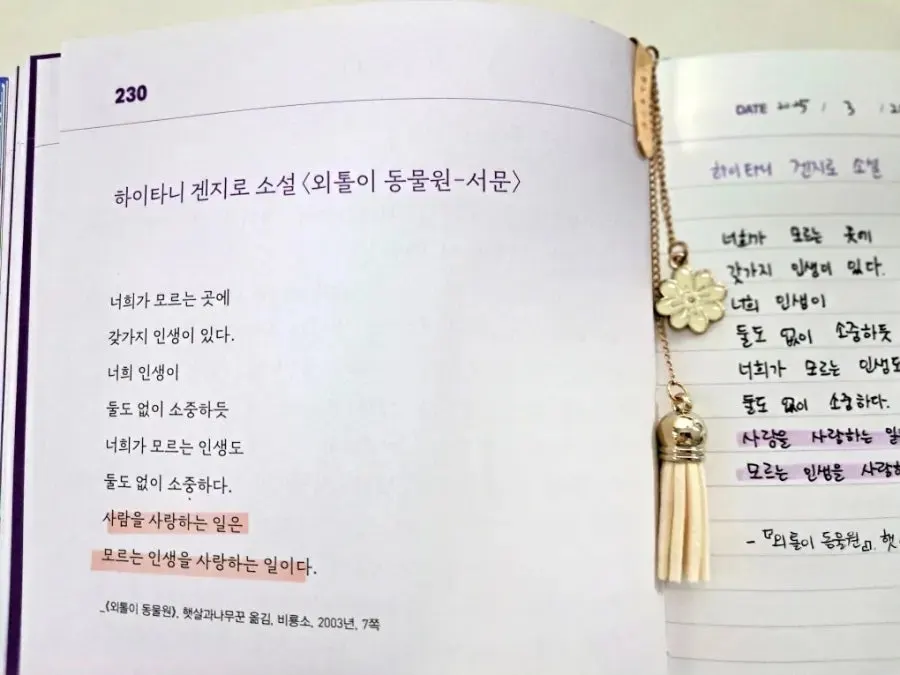 230
하이타니 겐지로 소설 〈외톨이 동물원-서문〉
너희가 모르는 곳에
갖가지 인생이 있다.
너희 인생이
둘도 없이 소중하듯
너희가 모르는 인생도
둘도 없이 소중하다.
사람을 사랑하는 일은
모르는 인생을 사랑하는 일이다.
_《외톨이 동물원》, 햇살과나무꾼 옮김, 비룡소, 2003년, 7쪽
DATE 2025 / 3 /
하이타니 겐지로 소설
너희가 모르는 곳에
갖가지 인생이 있다.
너희 인생이
둘도 없이 소중하듯
너희가 모르는 인생도
둘도 없이 소중하다.
사람을 사랑하는
모르는 인생을
-『외톨이 동물원』,